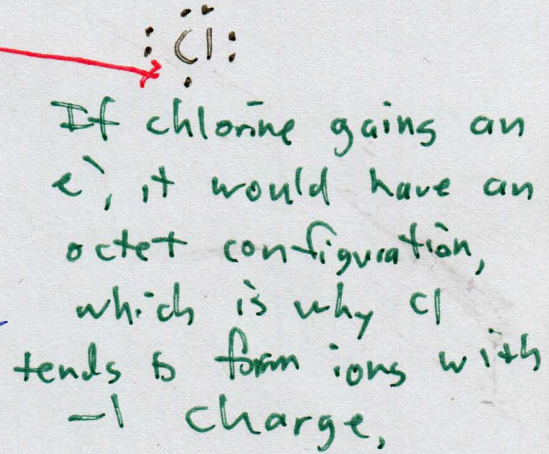 :Cl:
If chlorine gains an
e⁻, it would have an
octet configuration,
which is why Cl
tends to form ions with
-1 charge,